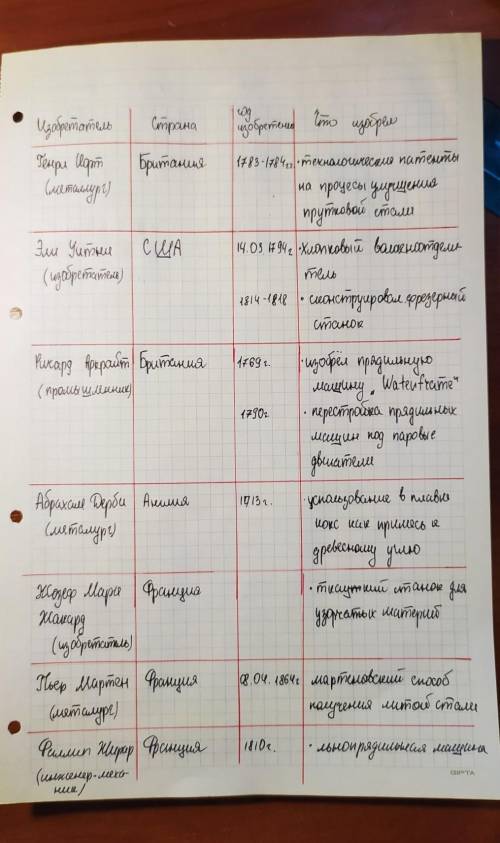 Изобретатель Страна год изобретения Что изобрёл
Генри Корт Британия 1783-1784гг. • технологические патенты
(металлург) на процесы улучшения
прутковой стали
Эли Уитни США 14.03.1794г • хлопковый волокноотдели-
(изобретатель) тель
1814-1818 • сконструировал фрезерный
станок
Рикард Аркрайт Британия 1769г. • изобрёл прядильную
(промышленник) машину „Waterframe“
1790г • перестройка прядильных
машин под паровые
двигатели
Абрахам Дерби Англия 1713г. • использование в плавке
(металург) кокс как примесь к
древесному углю
Жозеф Мари Франция • ткацкий станок для
Жакард узорчатых материй
(изобретатель)
Пьер Мартен Франция 08.04.1864г • мартеновский способ
(металург) получения литой стали
Филлип Жирар Франция 1810г. • льнопрядильная машина
(инженер-меха-
ник)